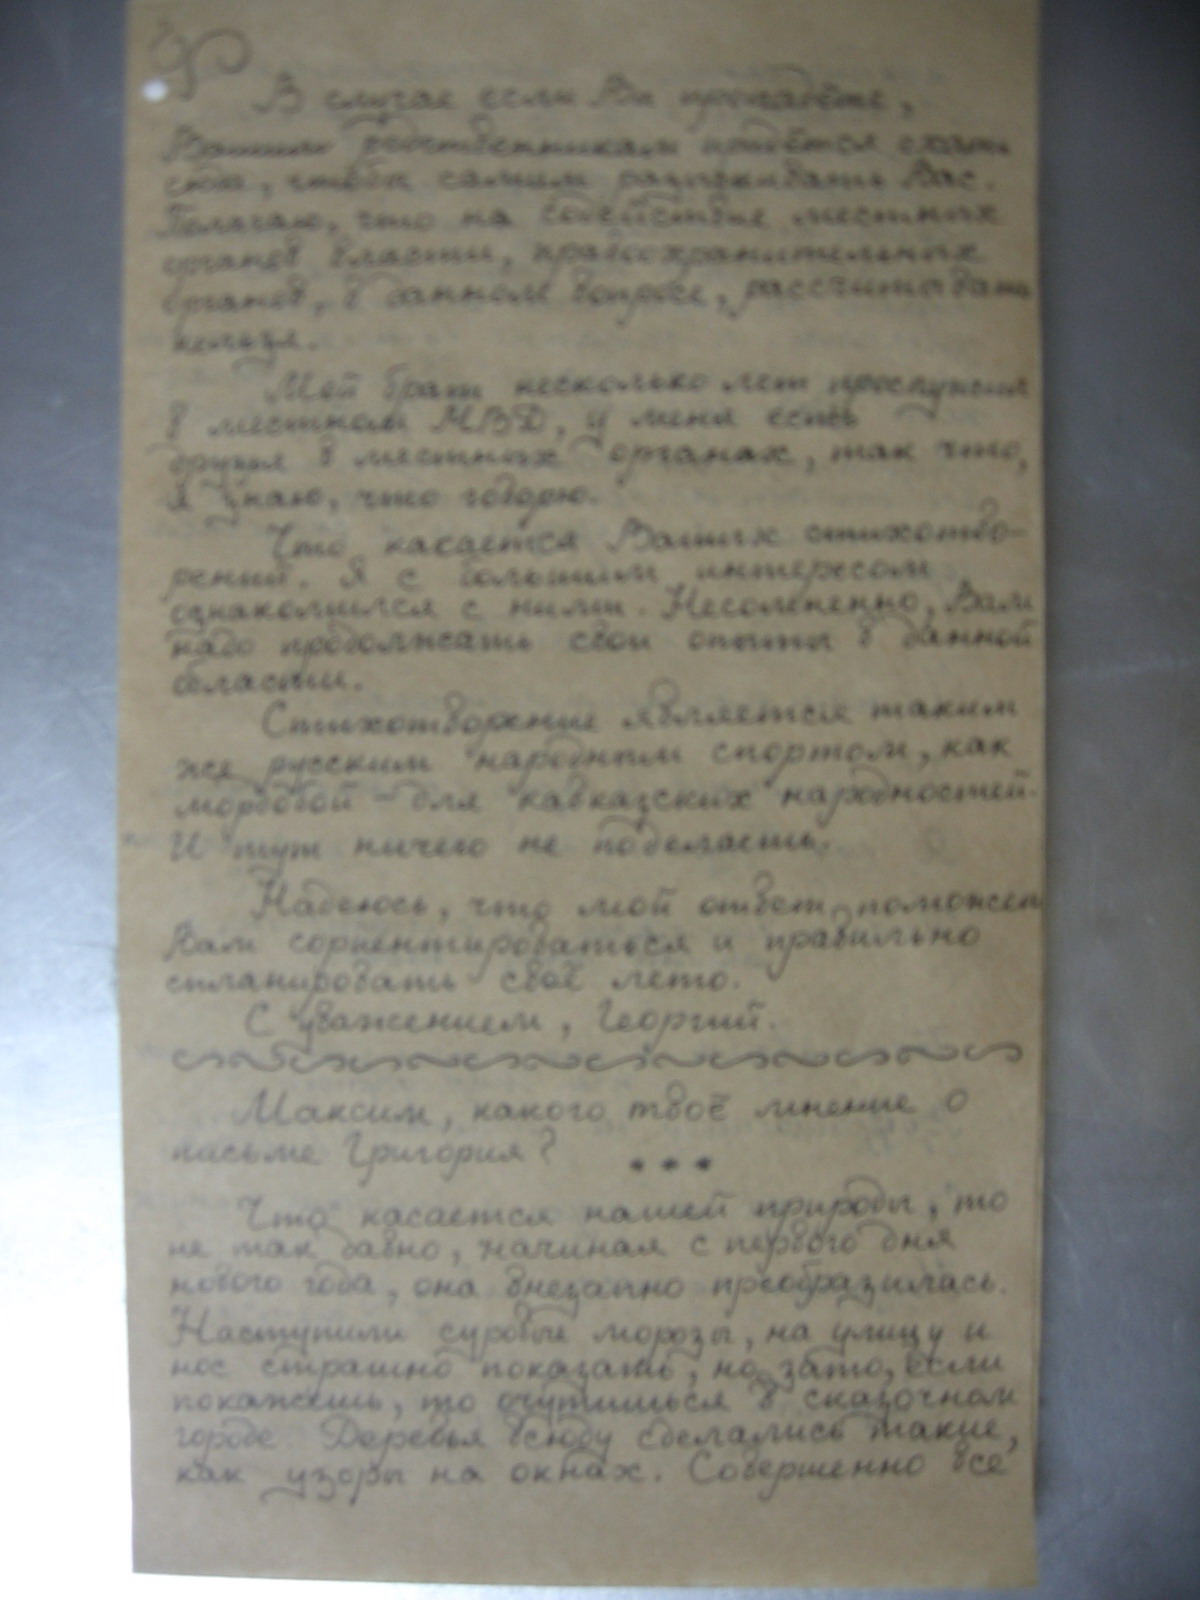 В случае если Вы пропадёте,
Вашим родственникам придётся ехать
сюда, чтобы самим разыскивать Вас.
Полагаю, что на содействие местных
органов власти, правоохранительных
органов, в данном вопросе, рассчитывать
нельзя.
Мой брат несколько лет прослужил
в местном МВД, у меня есть
друзья в местных органах, так что,
я знаю, что говорю.
Что касается Ваших стихотво-
рений. Я с большим интересом
ознакомился с ними. Несомненно, Вам
надо продолжать свои опыты в данной
области.
Стихотворение является таким
же русским народным спортом, как
мордобой - для кавказских народностей.
И тут ничего не поделаешь.
Надеюсь, что мой ответ поможет
Вам сориентироваться и правильно
спланировать своё лето.
С уважением, Георгий.
Максим, какого твоё мнение о
письме Григория?
* * *
Что касается нашей природы, то
не так давно, начиная с первого дня
нового года, она внезапно преобразилась.
Наступили суровые морозы, на улицу и
нос страшно показать, но зато, если
покажешь, то очутишься в сказочном
городе. Деревья всюду сделались такие,
как узоры на окнах. Совершенно все